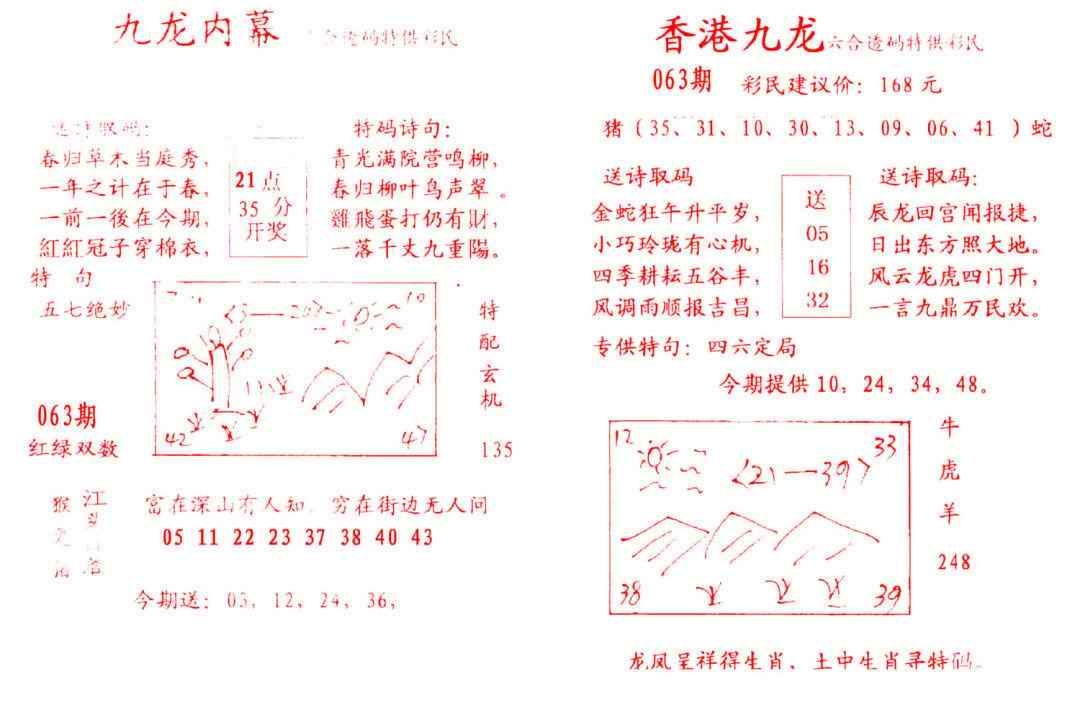 九龙内幕
合透码特供彩民
送诗取码:
春归草木当庭秀,
一年之计在于春,
一前一後在今期,
紅紅冠子穿棉衣,
特 句
五七绝妙
21点
35 分
开奖
特码诗句:
青光满院营鸣柳,
春归柳叶鸟声翠。
雞飛蛋打仍有財,
一落千丈九重陽。
10
42
47
特
配
玄
机
135
063期
红绿双数
猴
江
富在深山有人知, 穷在街边无人问
05 11 22 23 37 38 40 43
今期送: 03, 12, 24, 36,
香港九龙六合透码特供彩民
063期 彩民建议价: 168 元
猪 (35、31、10、30、13、09、06、41 ) 蛇
送诗取码
金蛇狂午升平岁,
小巧玲珑有心机,
四季耕耘五谷丰,
风调雨顺报吉昌,
送
05
16
32
送诗取码:
辰龙回宫闻报捷,
日出东方照大地。
风云龙虎四门开,
一言九鼎万民欢。
专供特句: 四六定局
今期提供 10, 24, 34, 48。
12
33
<21—39>
38
39
牛
虎
羊
248
龙凤呈祥得生肖、土中生肖寻特码。